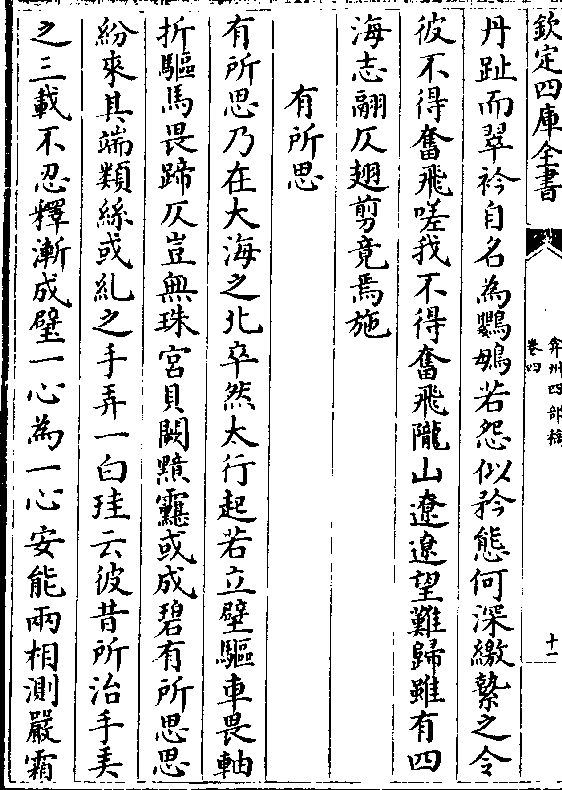 欽定四庫全書
弇州四部稿
卷四
十一
丹趾而翠衿自名為鸚鵡若怨似矜態何深繳縶之令
彼不得奮飛嗟我不得奮飛隴山遼遼望難歸雖有四
海志翮仄翅剪竟焉施
有所思
有所思乃在大海之北卒然太行起若立壁驅車畏軸
折驅馬畏蹄仄豈無珠宮貝闕黯靄或成碧有所思思
紛來其端類絲或糺之手弄一白珪云彼昔所治手羙
之三載不忍釋漸成壁一心為一心安能兩相測嚴霜